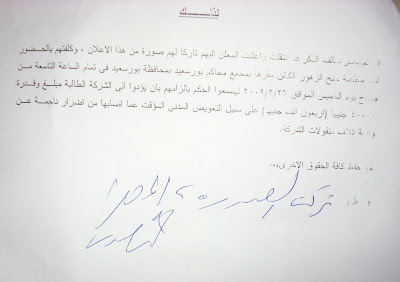 لذلـــــــك
سالف الذكر قد انتقلت واعلنت المعلن اليهم تاركا لهم صورة من هذا الاعلان ، وكلفتهم بالحضور
الزهور الكائن مقرها بمجمع محاكم بورسعيد بمحافظة بورسعيد فى تمام الساعة التاسعة مــن
يوم الخميس الموافق ٢٠٠٩/٢/٢٦ ليسمعوا الحكم بالزامهم بان يؤدوا الى الشركة الطالبة مبلــغ وقــدرة
جنيها (اربعون الف جنيها) على سبيل التعويض المدنى المؤقت عما اصابها من اضرار ناجمــة عــن
اتلاف منقولات الشركة.
حفظ كافة الحقوق الاخرى،،،